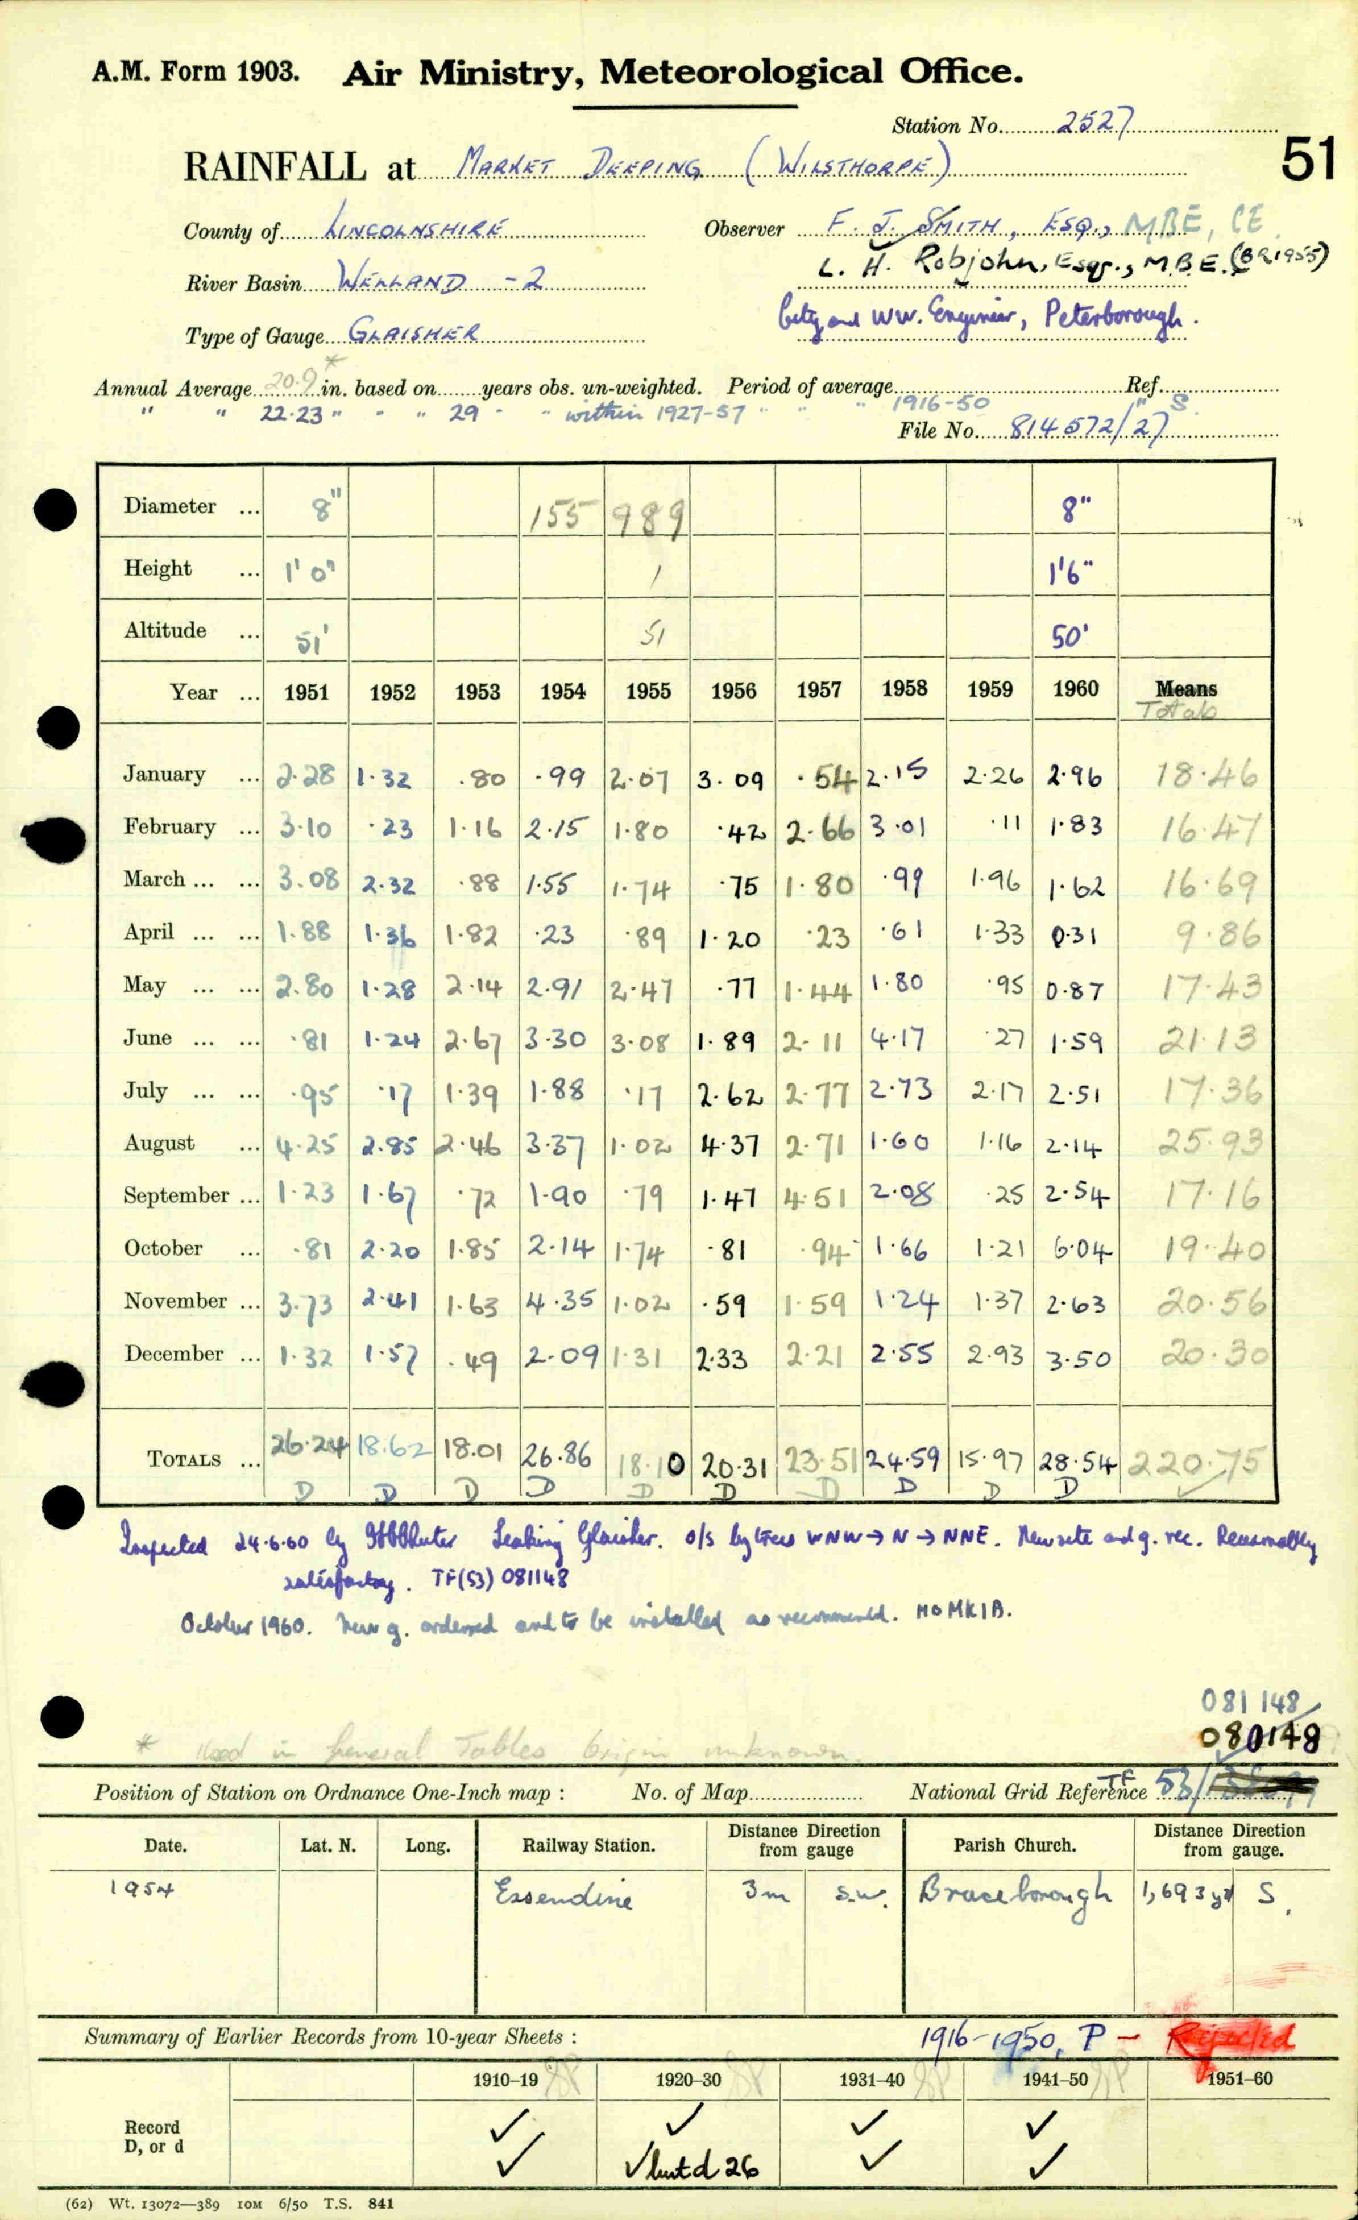 A.M. Form 1903. Air Ministry, Meteorological Office.
Station No. 2527
51
RAINFALL at MARKET DEEPING (WILSTHORPE)
County of LINCOLNSHIRE Observer F. J. SMITH, ESQ., MBE, CE.
L. H. Robjohn, Esqr., M.B.E. (BR 1955)
River Basin WELLAND -2
City and WW. Engineer, Peterborough.
Type of Gauge GLAISHER
Annual Average 20.9* in. based on years obs. un-weighted. Period of average Ref.
" " 22.23 " " " 29 " " within 1927-57 " " " 1916-50 " S
File No. 814572/27
Diameter ... 8" 155 989 8"
Height ... 1' 0" 1 1'6"
Altitude ... 51' 51 50'
Year ... 1951 1952 1953 1954 1955 1956 1957 1958 1959 1960 Means
Totals
January ... 2.28 1.32 .80 .99 2.07 3.09 .54 2.15 2.26 2.96 18.46
February ... 3.10 .23 1.16 2.15 1.80 .42 2.66 3.01 .11 1.83 16.47
March ... ... 3.08 2.32 .88 1.55 1.74 .75 1.80 .99 1.96 1.62 16.69
April ... ... 1.88 1.36 1.82 .23 .89 1.20 .23 .61 1.33 0.31 9.86
May ... ... 2.80 1.28 2.14 2.91 2.47 .77 1.44 1.80 .95 0.87 17.43
June ... ... .81 1.24 2.67 3.30 3.08 1.89 2.11 4.17 .27 1.59 21.13
July ... ... .95 .17 1.39 1.88 .17 2.62 2.77 2.73 2.17 2.51 17.36
August ... 4.25 2.85 2.46 3.37 1.02 4.37 2.71 1.60 1.16 2.14 25.93
September ... 1.23 1.67 .72 1.90 .79 1.47 4.51 2.08 .25 2.54 17.16
October ... .81 2.20 1.85 2.14 1.74 .81 .94 1.66 1.21 6.04 19.40
November ... 3.73 2.41 1.63 4.35 1.02 .59 1.59 1.24 1.37 2.63 20.56
December ... 1.32 1.57 .49 2.09 1.31 2.33 2.21 2.55 2.93 3.50 20.30
TOTALS ... 26.24 18.62 18.01 26.86 18.10 20.31 23.51 24.59 15.97 28.54 220.75
D D D D D D D D D D
Inspected 24.6.60 by Leaking Glaisher. o/s by trees WNW → N → NNE. New site and g. rec. Reasonably
satisfactory. TF(53) 081148
October 1960. New g. ordered and to be installed as recommended. MO MK1B.
081 148
080148
* Used in General Tables origin unknown.
Position of Station on Ordnance One-Inch map : No. of Map National Grid Reference TF 53/
Date. Lat. N. Long. Railway Station. Distance Direction from gauge Parish Church. Distance Direction from gauge.
1954 Essendine 3m S.W. Braceborough 1,693 yd S.
Summary of Earlier Records from 10-year Sheets : 1916-1950, P - Rejected
1910-19 1920-30 1931-40 1941-50 1951-60
Record ✓ ✓ ✓ ✓
D, or d ✓ ✓ but d 26 ✓ ✓
(62) Wt. 13072—389 10M 6/50 T.S. 841